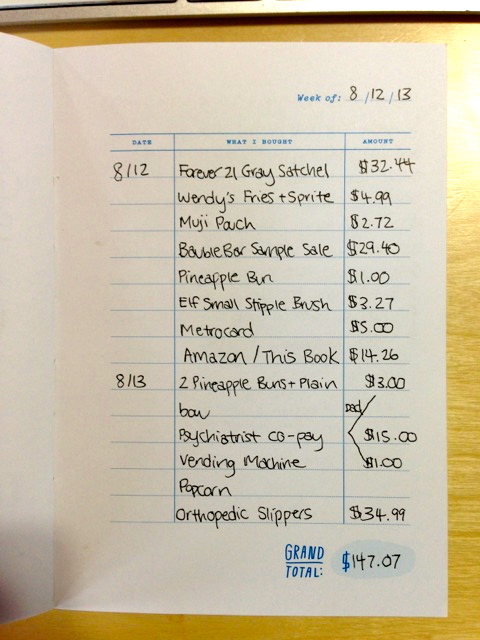 Week of: 8/12/13
DATE WHAT I BOUGHT AMOUNT
8/12 Forever 21 Gray Satchel $32.44
Wendy's Fries + Sprite $4.99
Muji Pouch $2.72
BaubleBar Sample Sale $29.40
Pineapple Bun $1.00
Elf Small Stipple Brush $3.27
Metrocard $5.00
Amazon / This Book $14.26
8/13 2 Pineapple Buns + Plain $3.00
bow
Psychiatrist co-pay $15.00
Vending Machine $1.00
Popcorn
Orthopedic Slippers $34.99
GRAND TOTAL: $147.07